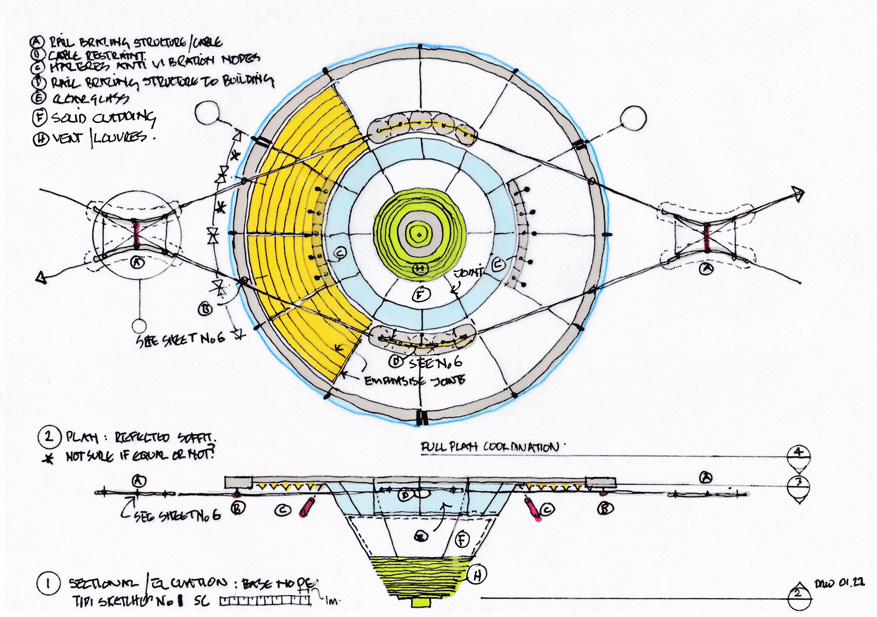 A RAIL BRACING STRUCTURE/CABLE
B CABLE RESTRAINT.
C HALTERES ANTI VIBRATION NODES
D RAIL BRACING STRUCTURE TO BUILDING
E CLEAR GLASS
F SOLID CLADDING
H VENT / LOUVRES.
C
C
H
JOINT
F
A
A
B
SEE SHEET No 6
D SEE No 6
EMPHASISE JOINTS
2 PLAN: REFLECTED SOFFIT.
* NOT SURE IF EQUAL OR NOT?
FULL PLAN COORDINATION.
4
3
A
D
A
SEE SHEET No 6
B
C
C
B
E
F
H
1 SECTIONAL / ELEVATION: BASE NODE.
No 1 SC 1m.
2
01.22